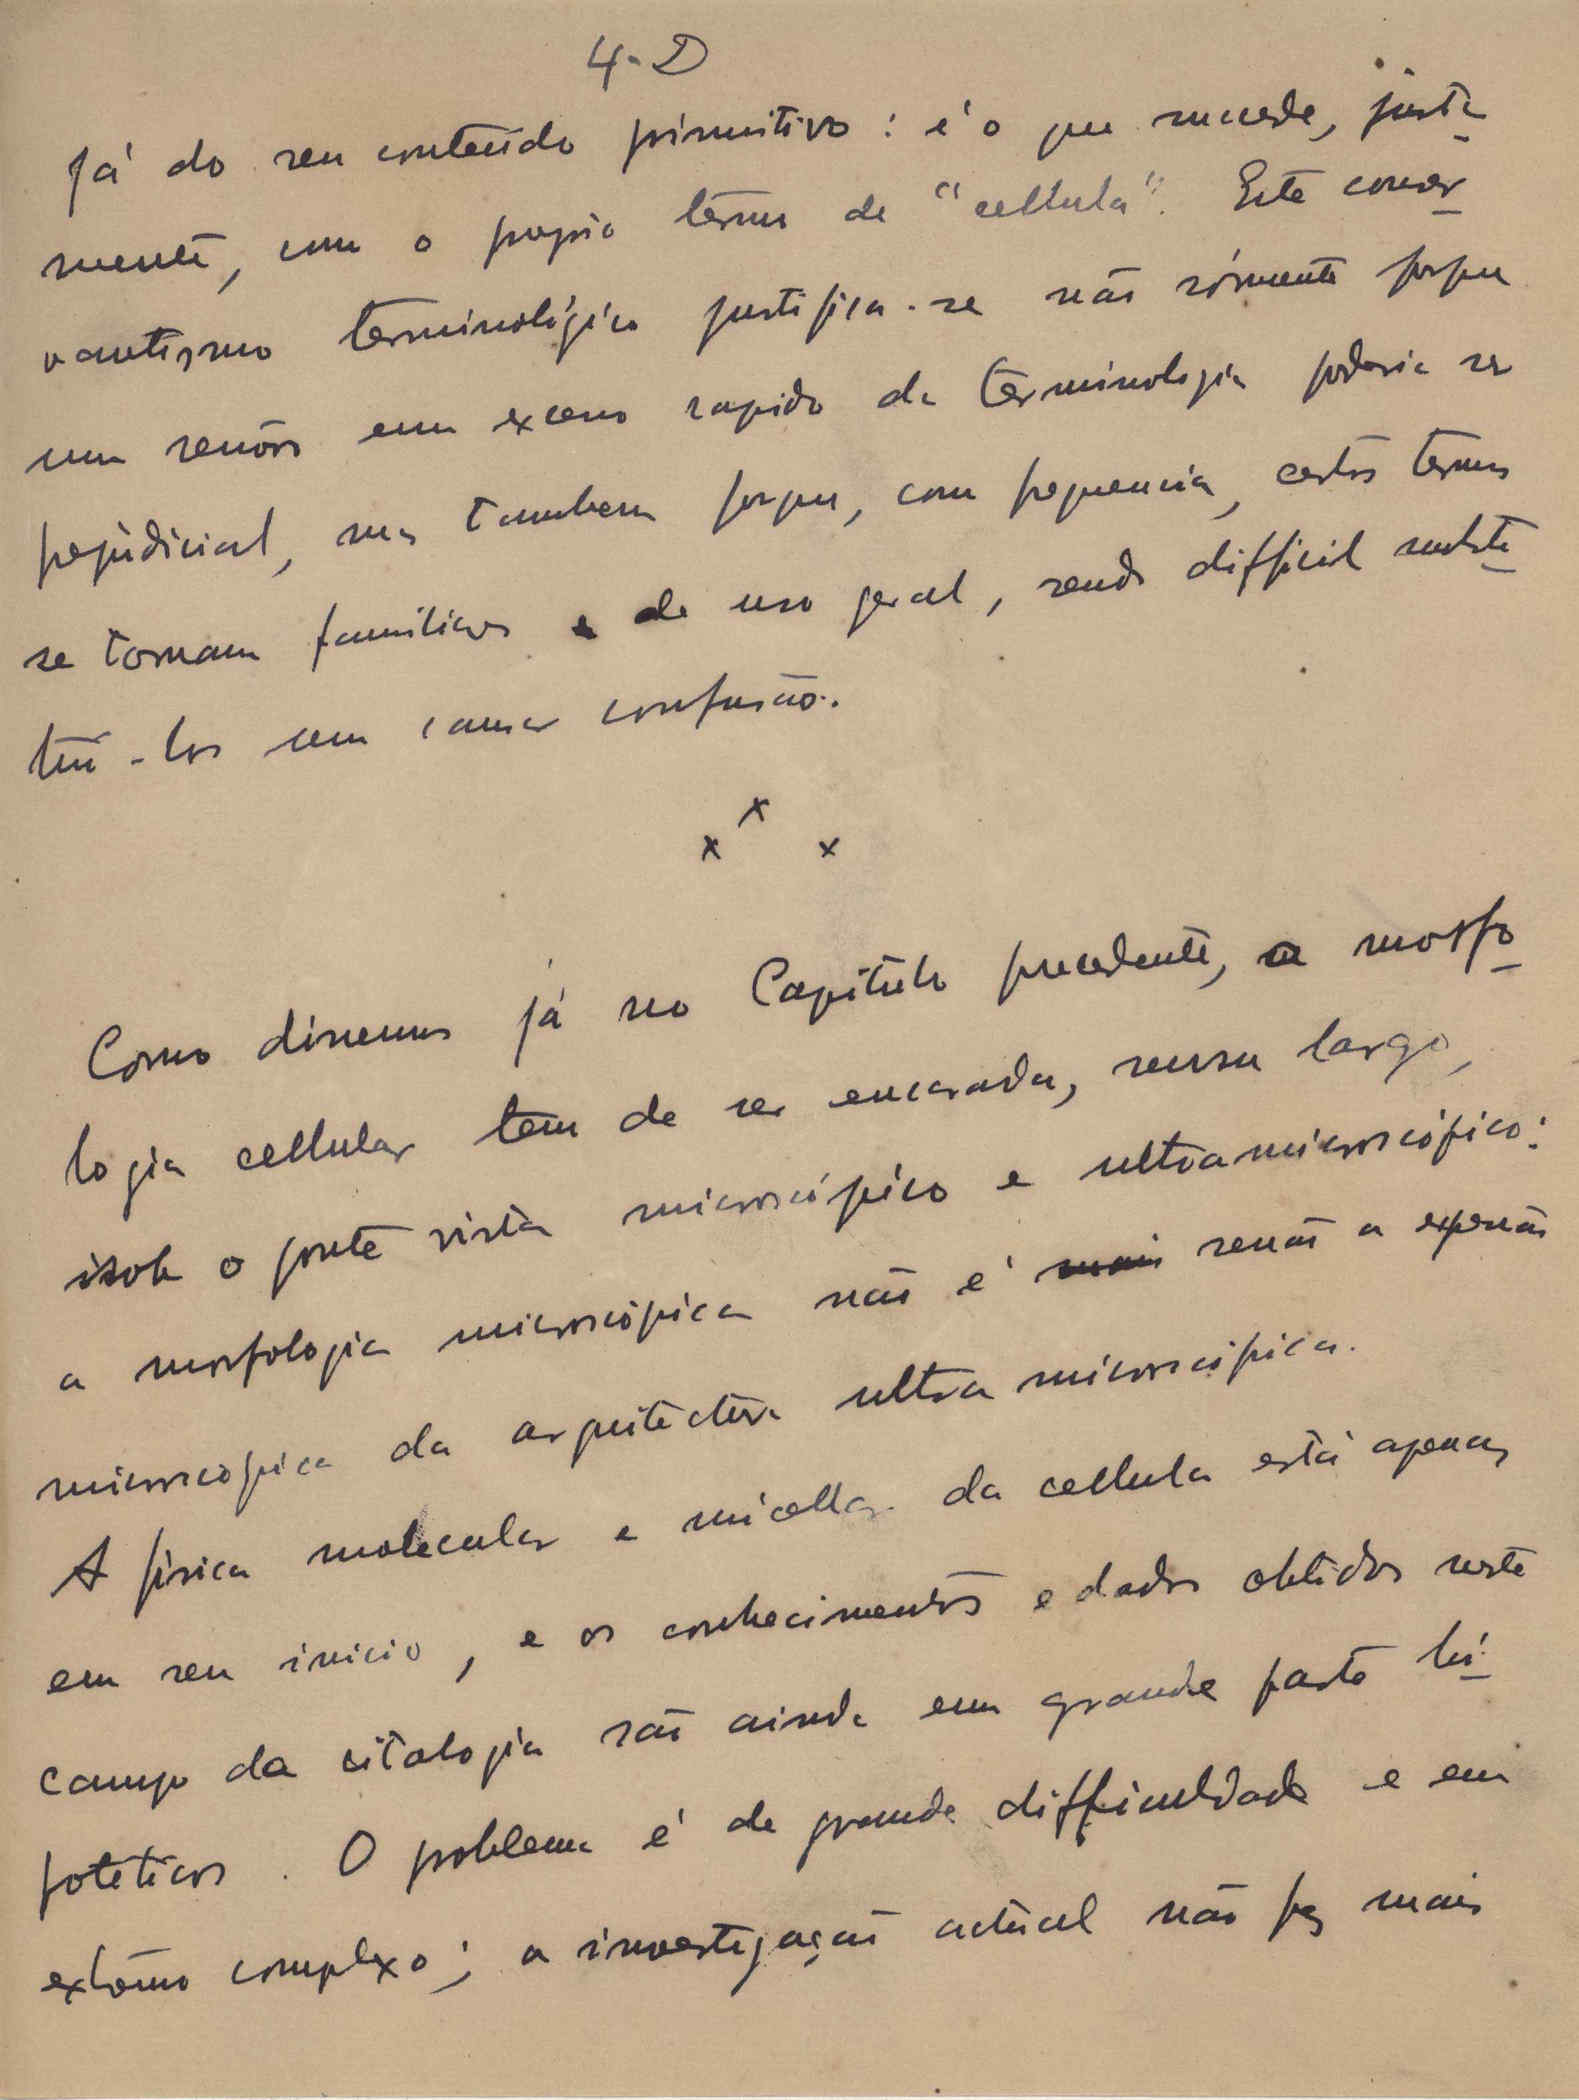 4-D
já do seu conteúdo primitivo: é o que succede, justa
mente, com o proprio termo de "cellula". Este conser
vantismo terminológico justifica-se não sómente porque
um senões em excesso rapido da terminologia poderia ser
prejudicial, mas tambem porque, com frequencia, certos termos
se tornam familiares e de uso geral, sendo difficil substi
tui-los sem causar confusão.
x x x
Como dissemos já no Capitulo precedente, a morfo
logia cellular tem de ser encarada, sensu largo,
sob o ponto vista microscópico e ultramicroscópico:
a morfologia microscópica não é mais senão a expensão
microscopica da arquitectura ultramicroscópica.
A física molecular e micellar da cellula está apenas
em seu inicio, e os conhecimentos e dados obtidos neste
campo da citologia são ainda em grande parte hi
poteticos. O problema é de grande difficuldade e em
extremo complexo; a investigação actual não fez mais